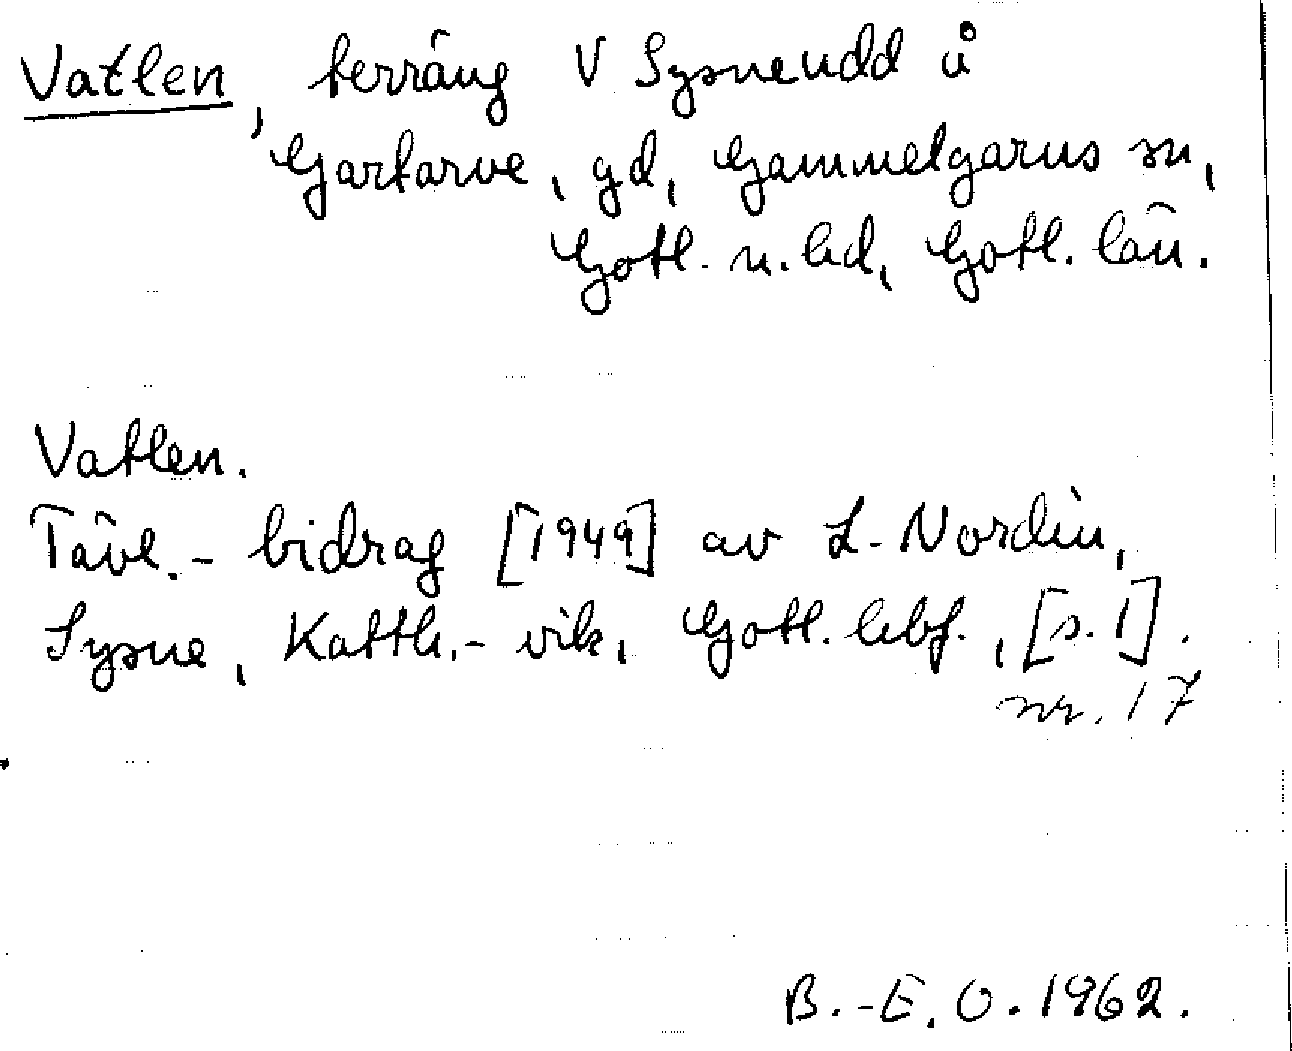 Vatlen, terräng V Sysneudd å
Gartarve, gd, Gammelgarns sn,
Gotl. n. hd, Gotl. län.
Vatlen.
Tävl.-bidrag [1949] av L. Nordin,
Sysne, Katth.-vik, Gotl. hbf., [s. 1].
nr. 17
B.-E. O. 1962.